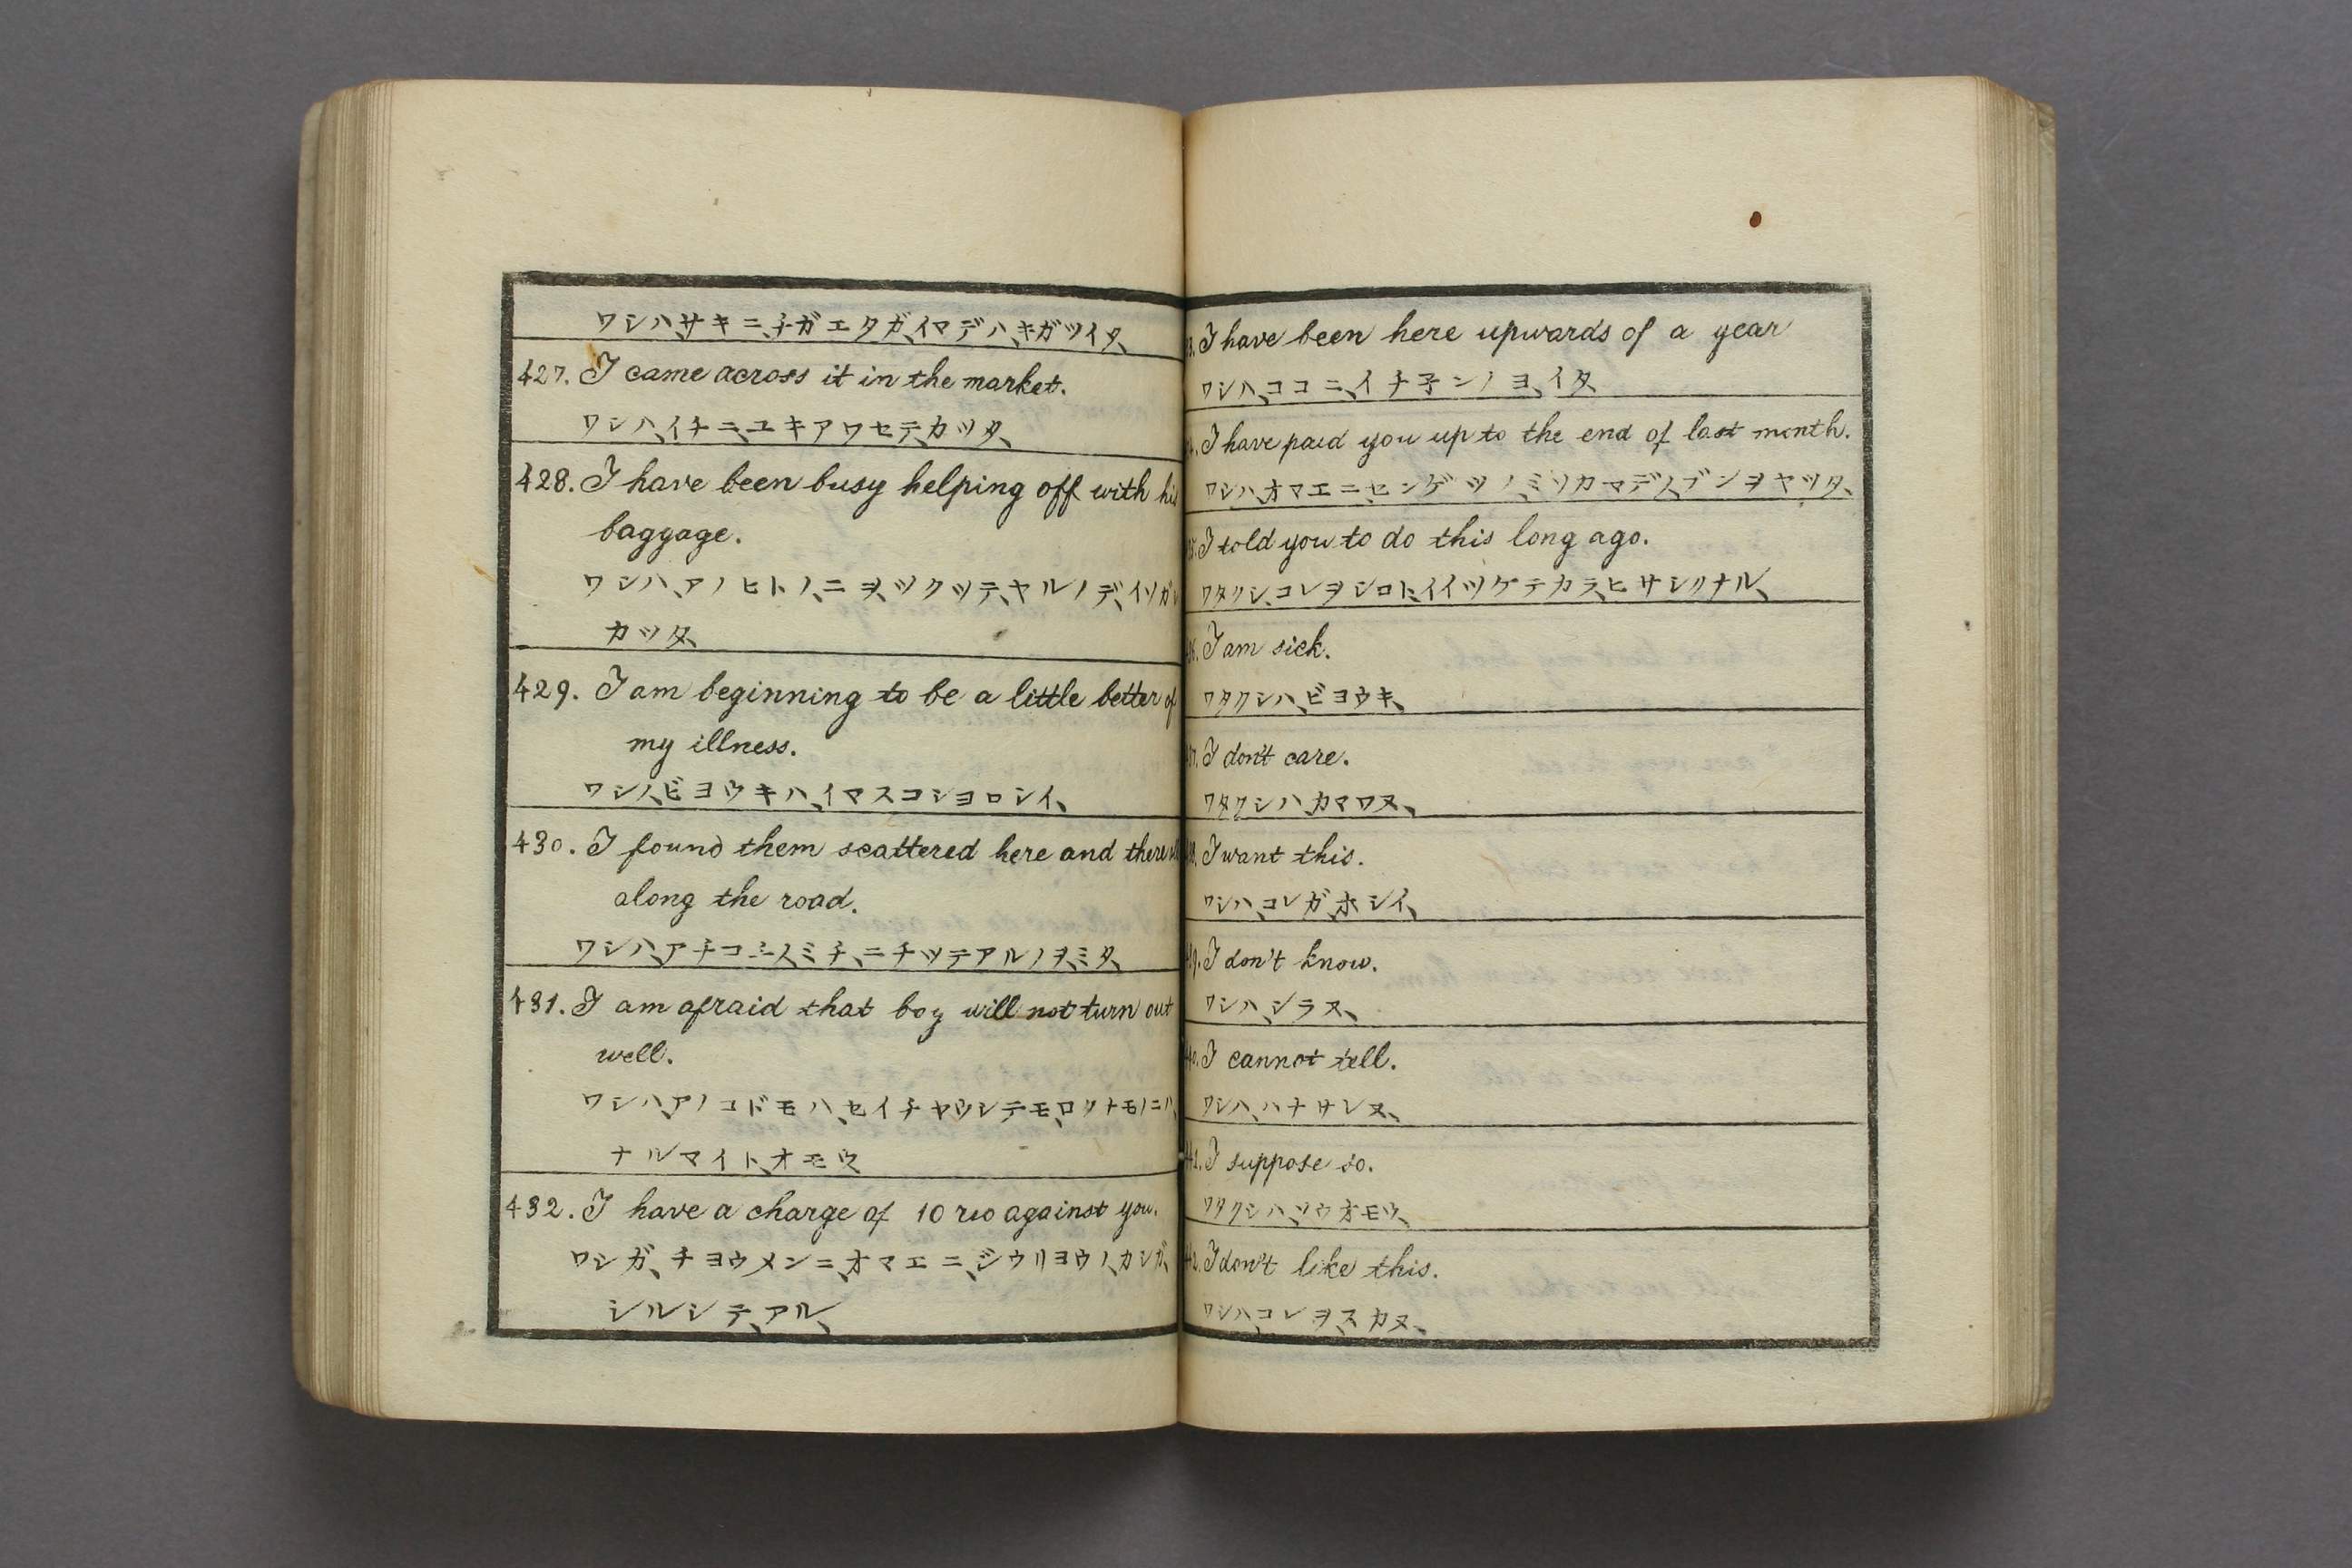 ワシハ、サキニ、チガエタガ、イマデハ、キガツイタ、
427. I came across it in the market.
ワシハ、イチニ、ユキアワセテ、カツタ、
428. I have been busy helping off with his
baggage.
ワシハ、アノヒトノ、ニヲ、ツクツテ、ヤルノデ、イソガシ
カツタ、
429. I am beginning to be a little better of
my illness.
ワシノ、ビヨウキハ、イマスコシヨロシイ、
430. I found them scattered here and there
along the road.
ワシハ、アチコチノ、ミチ、ニチツテアルノヲ、ミタ、
431. I am afraid that boy will not turn out
well.
ワシハ、アノコドモハ、セイチヤウシテモ、ロクナモノニハ、
ナルマイト、オモウ
432. I have a charge of 10 rio against you.
ワシガ、チヨウメンニ、オマエニ、ジウリヨウノ、カシガ、
シルシテ、アル、
I have been here upwards of a year
ワシハ、ココニ、イチ子ンノヨ、イタ
I have paid you up to the end of last month.
ワシハ、オマエニ、センゲツノ、ミソカマデノ、ブンヲヤツタ、
I told you to do this long ago.
ワタクシ、コレヲシロト、イイツケテカラ、ヒサシクナル、
I am sick.
ワタクシハ、ビヨウキ、
I don't care.
ワタクシハカマワヌ、
I want this.
ワシハ、コレガ、ホシイ、
I don't know.
ワシハ、シラヌ、
I cannot tell.
ワシハ、ハナサレヌ、
I suppose so.
ワタクシハ、ソウオモウ、
I don't like this.
ワシハ、コレヲ、スカヌ、